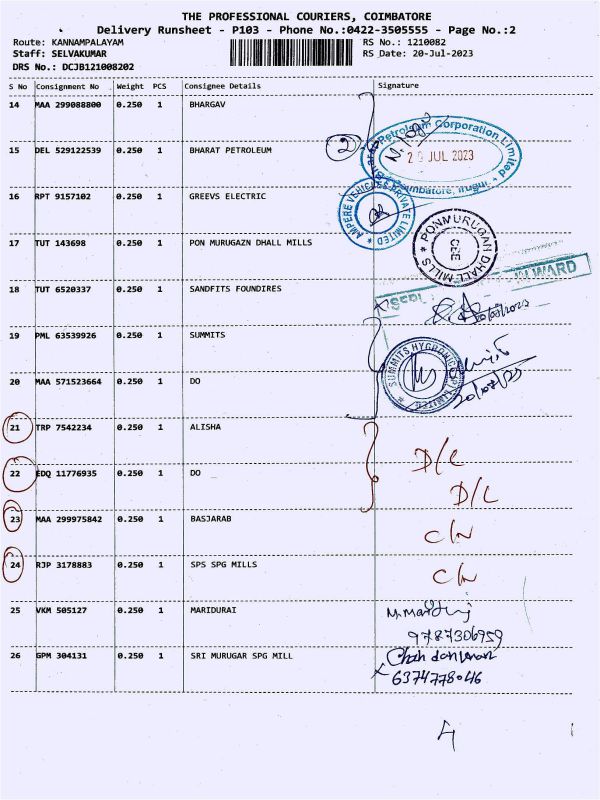 THE PROFESSIONAL COURIERS, COIMBATORE
Delivery Runsheet - P103 - Phone No.:0422-3505555 - Page No.:2
Route: KANNAMPALAYAM RS No.: 1210082
Staff: SELVAKUMAR RS Date: 20-Jul-2023
DRS No.: DCJB121008202
S No Consignment No Weight PCS Consignee Details Signature
14 MAA 299088800 0.250 1 BHARGAV
15 DEL 529122539 0.250 1 BHARAT PETROLEUM 2
Bharat Petroleum Corporation Limited
20 JUL 2023
Coimbatore, Irugur
16 RPT 9157102 0.250 1 GREEVS ELECTRIC
AMPERE VEHICLES PRIVATE LIMITED
17 TUT 143698 0.250 1 PON MURUGAZN DHALL MILLS
PONMURUGAN DHALL MILLS
CBE
18 TUT 6520337 0.250 1 SANDFITS FOUNDIRES
INWARD
20/07/2023
19 PML 63539926 0.250 1 SUMMITS
SUMMITS HYGRONICS (P) LIMITED
20 MAA 571523664 0.250 1 DO
20/07/23
21 TRP 7542234 0.250 1 ALISHA D/L
22 EDQ 11776935 0.250 1 DO D/L
23 MAA 299975842 0.250 1 BASJARAB C/N
24 RJP 3178883 0.250 1 SPS SPG MILLS C/N
25 VKM 505127 0.250 1 MARIDURAI
9787306959
26 GPM 304131 0.250 1 SRI MURUGAR SPG MILL
6374778046